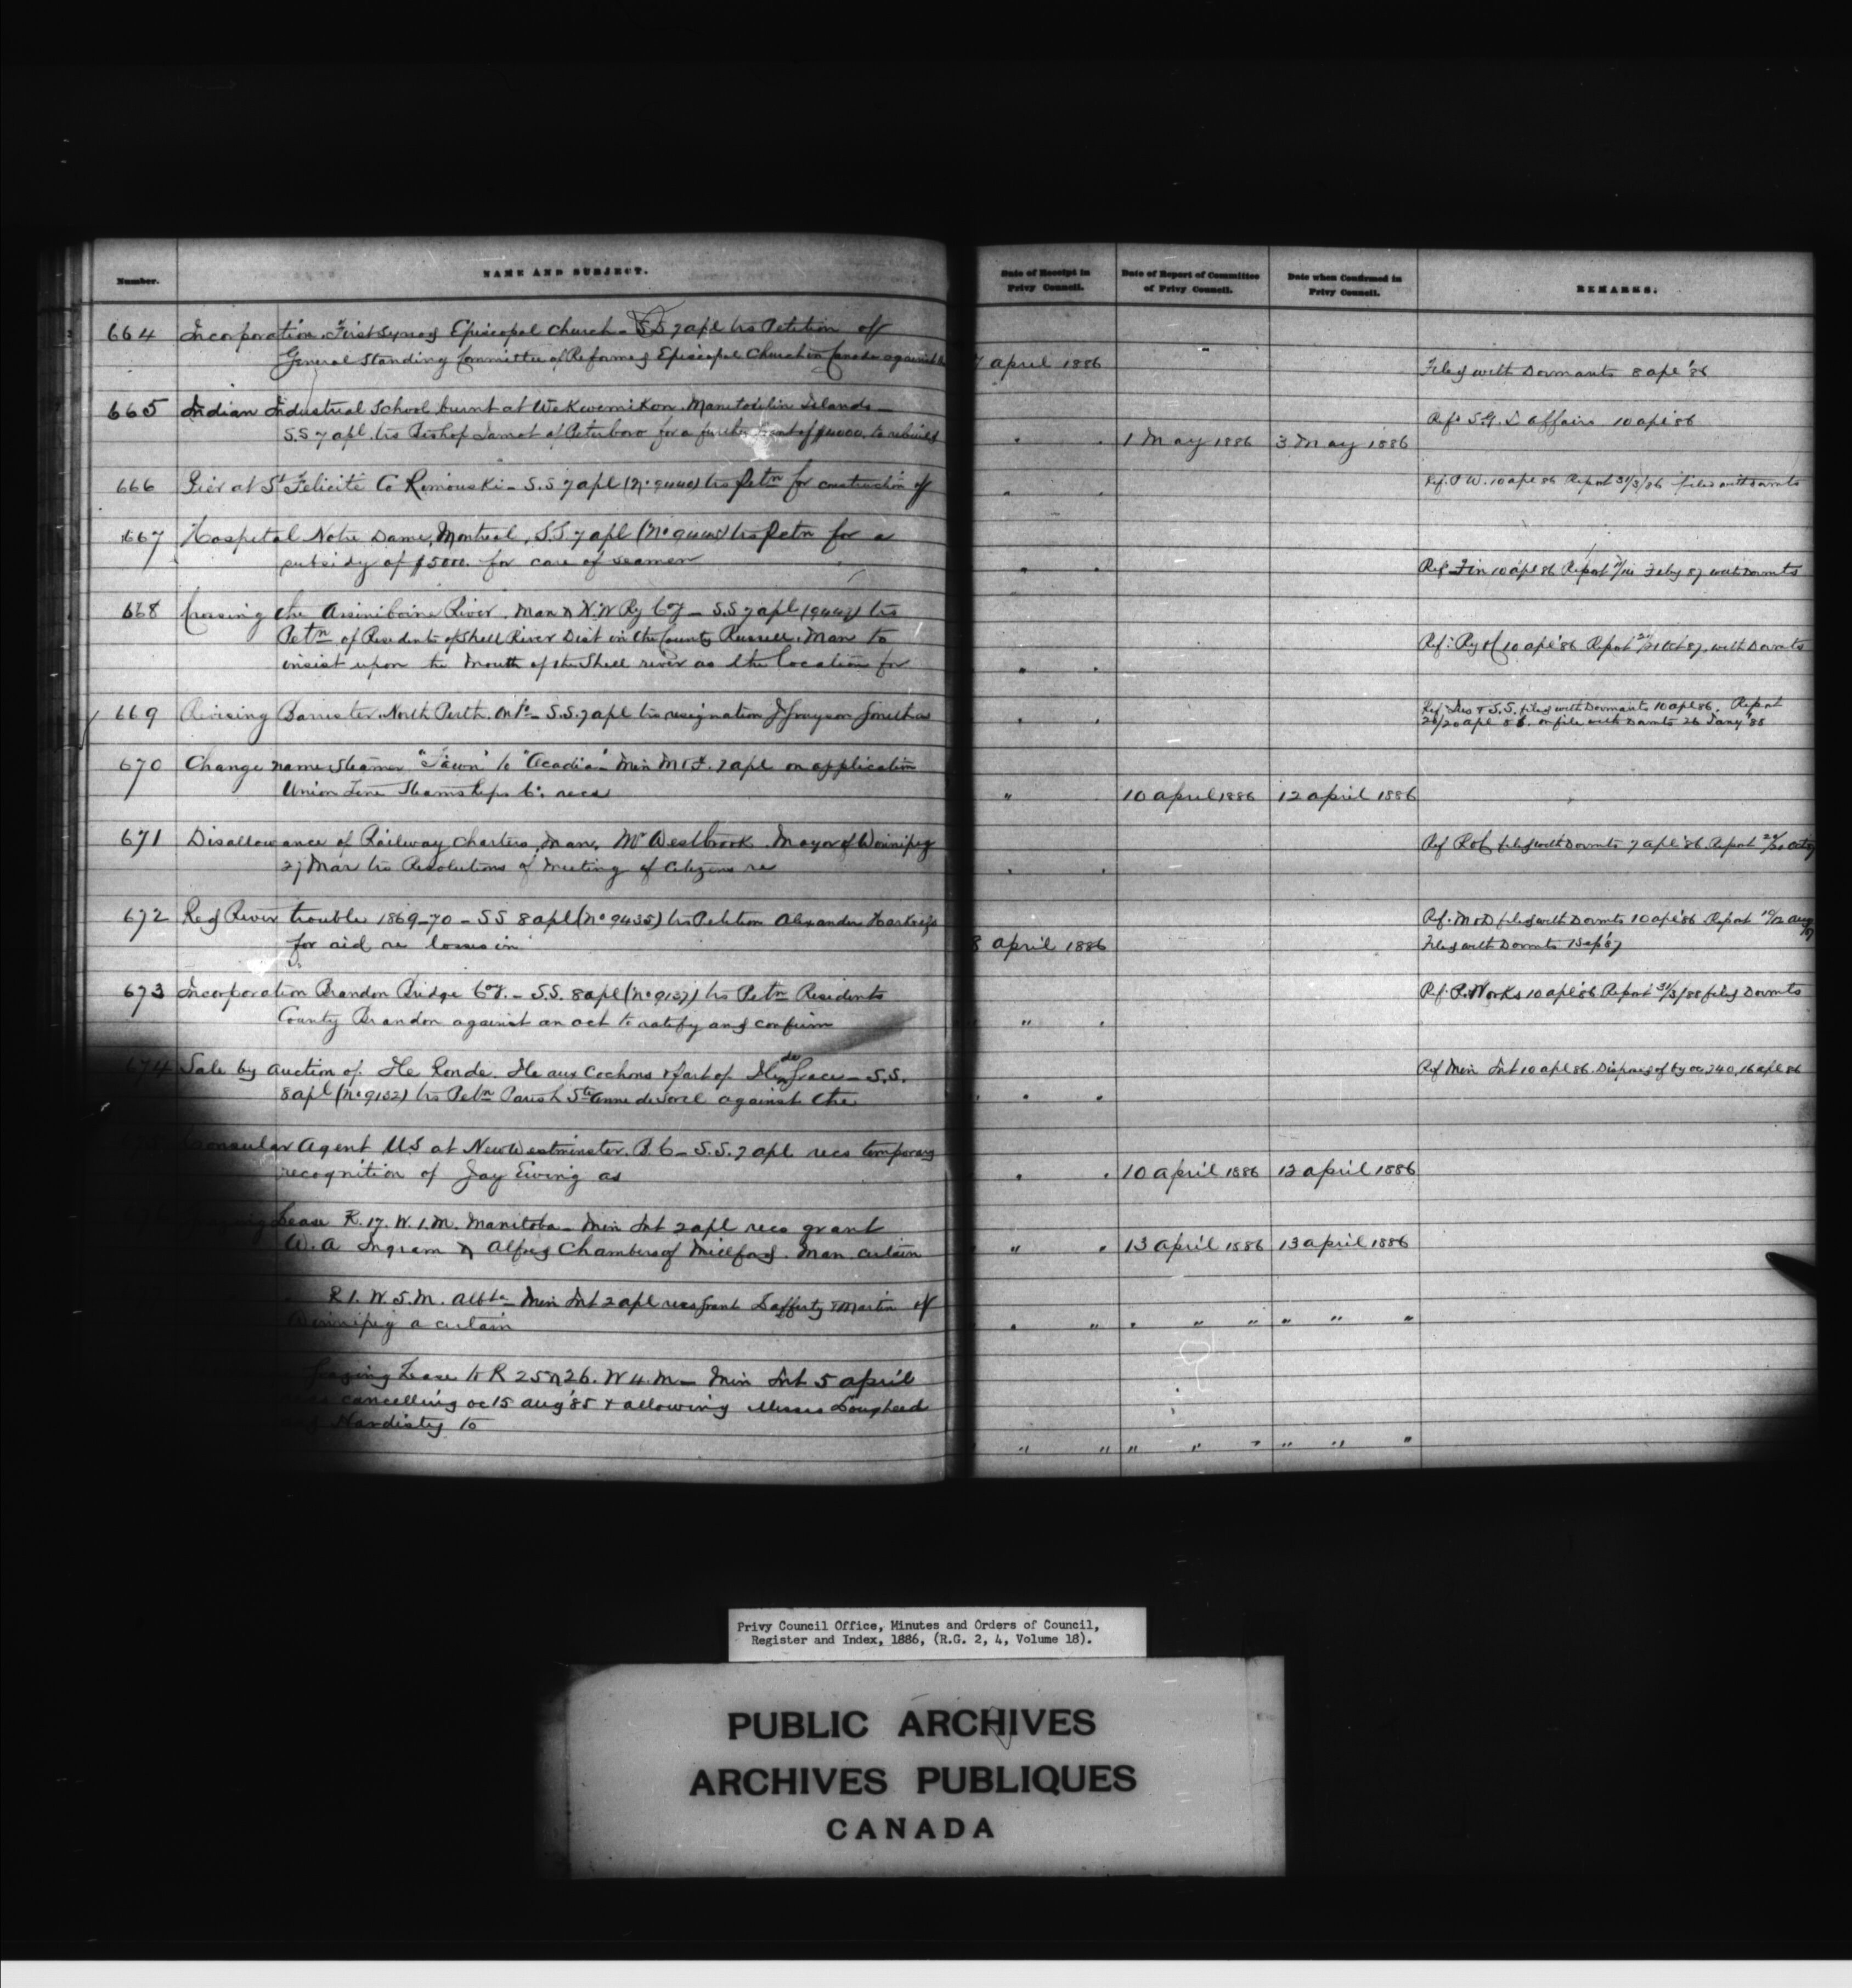 Number.
NAME AND SUBJECT.
Date of Receipt in
Privy Council.
Date of Report of Committee
of Privy Council.
Date when Confirmed in
Privy Council.
REMARKS.
664 Incorporation First Synod Episcopal Church - S.S 7 apl trs Petition of
General Standing Committee of Reformed Episcopal Church in Canada against
7 april 1886
Filed with Dormants 8 apl '86
665 Indian Industrial School burnt at Wekwemikon Manitoulin Islands -
S.S 7 apl. trs Bishop Jamot of Peterboro for a further Grant of $4000. to rebuild
" " 1 May 1886 3 May 1886
Ref. S.G. I affairs 10 apl '86
666 Pier at St Felicite Co Rimouski - S.S 7 apl (No 9440) trs Petn for construction of
" "
Ref. P W. 10 apl 86 Report 31/3/86 filed with Dormts
667 Hospital Notre Dame, Montreal, S.S 7 apl trs Petn for a
subsidy of $5000. for care of seamen
" "
Ref Fin 10 apl 86 Report Feby 87 with Dormts
668 Crossing the Assiniboine River, Man & N.W Ry Coy - S.S 7 apl trs
Petn of Residents of Shell River Dist in the County Russell, Man to
insist upon the mouth of the Shell river as the location for
" "
Ref: Ry & C 10 apl '86 Report 21 Oct 87. with Dormts
669 Revising Barrister North Perth. Onto - S.S. 7 apl trs resignation
" "
Ref Jus & S.S. filed with Dormants 10 apl 86. Report
20 apl on file with Dormts 26 Jany '88
670 Change name Steamer to "Acadia" Min M & F. 7 apl on application
Union Line Steamships Co. recs
" " 10 april 1886 12 april 1886
671 Disallowance of Railway Charters, Man, Mr Westbrook Mayor of Winnipeg
27 Mar trs Resolutions of Meeting of Citizens re
" "
Ref R & C filed with Dormts 7 apl '86. Report
672 Red River trouble 1869-70 - SS 8 apl (No 9435) trs Petition Alexander
for aid re losses in
8 april 1886
Ref. M & D filed with Dormts 10 apl '86 Report 10/12 aug 87
Filed with Dormts 1 Sep '87
673 Incorporation Brandon Bridge Coy. - S.S. 8 apl (No 9137) trs Petn Residents
County Brandon against an act to ratify and confirm
" "
Ref: P. Works 10 apl '86 Report 31/3/88 filed Dormts
674 Sale by Auction of Ile Ronde. Ile aux Cochons & part of Ile de Grace - S.S.
8 apl (No 9132) trs Petn Parish Ste Anne de Sorel against the
" "
Ref Min Int 10 apl 86. Disposed of by oc 740, 16 apl 86
Consular Agent US at New Westminster. B.C - S.S. 7 apl recs temporary
recognition of Jay Ewing as
" " 10 april 1886 12 april 1886
Lease R. 17. W. 1. M. Manitoba - Min Int 2 apl recs grant
W. A Ingram & Alfred Chambers of Millford. Man certain
" " 13 april 1886 13 april 1886
R 1. W. 5. M. Albta - Min Int 2 apl recs grant Lafferty & Martin of
Winnipeg a certain
" " " " " " " "
Grazing Lease to R 25 & 26. W 4. M - Min Int 5 april
cancelling oc 15 aug '85 & allowing Messrs Lougheed
Hardisty to
" " " " " " " "
Privy Council Office, Minutes and Orders of Council,
Register and Index, 1886, (R.G. 2, 4, Volume 18).
PUBLIC ARCHIVES
ARCHIVES PUBLIQUES
CANADA